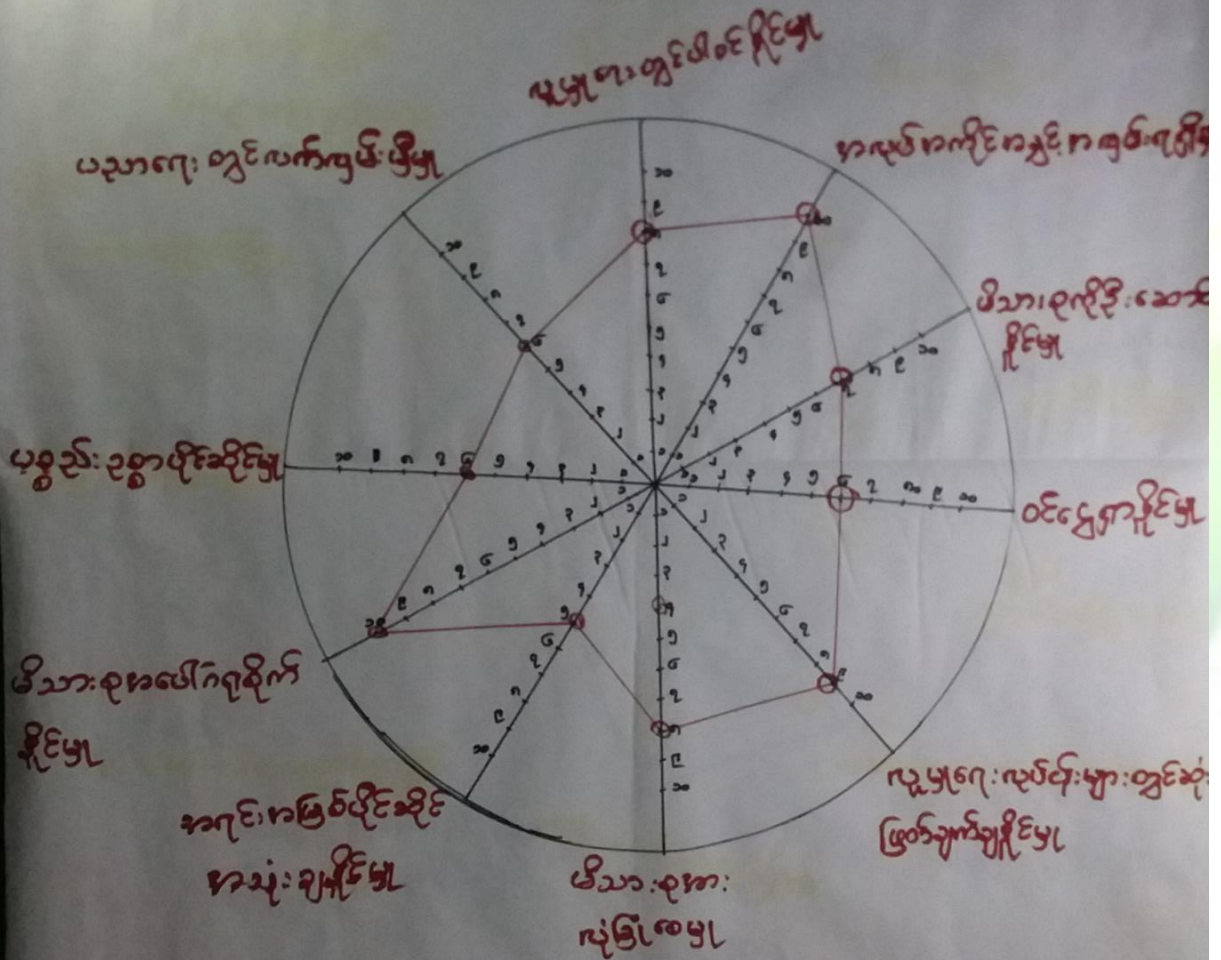 လူမှုရေးတွင်ပါဝင်နိုင်မှု
အလုပ်အကိုင်အခွင့်အလမ်းရရှိမှု
မိသားစုကိုဦးဆောင်
နိုင်မှု
ဝင်ငွေရှာနိုင်မှု
လူမှုရေးလုပ်ငန်းများတွင်ဆုံး
ဖြတ်ချက်ချနိုင်မှု
မိသားစုအား
လုံခြုံစေမှု
အရင်းအမြစ်ပိုင်ဆိုင်
အသုံးချနိုင်မှု
မိသားစုအပေါ်ဂရုစိုက်
နိုင်မှု
ပစ္စည်းဥစ္စာပိုင်ဆိုင်မှု
ပညာရေးတွင်လက်လှမ်းမှီမှု